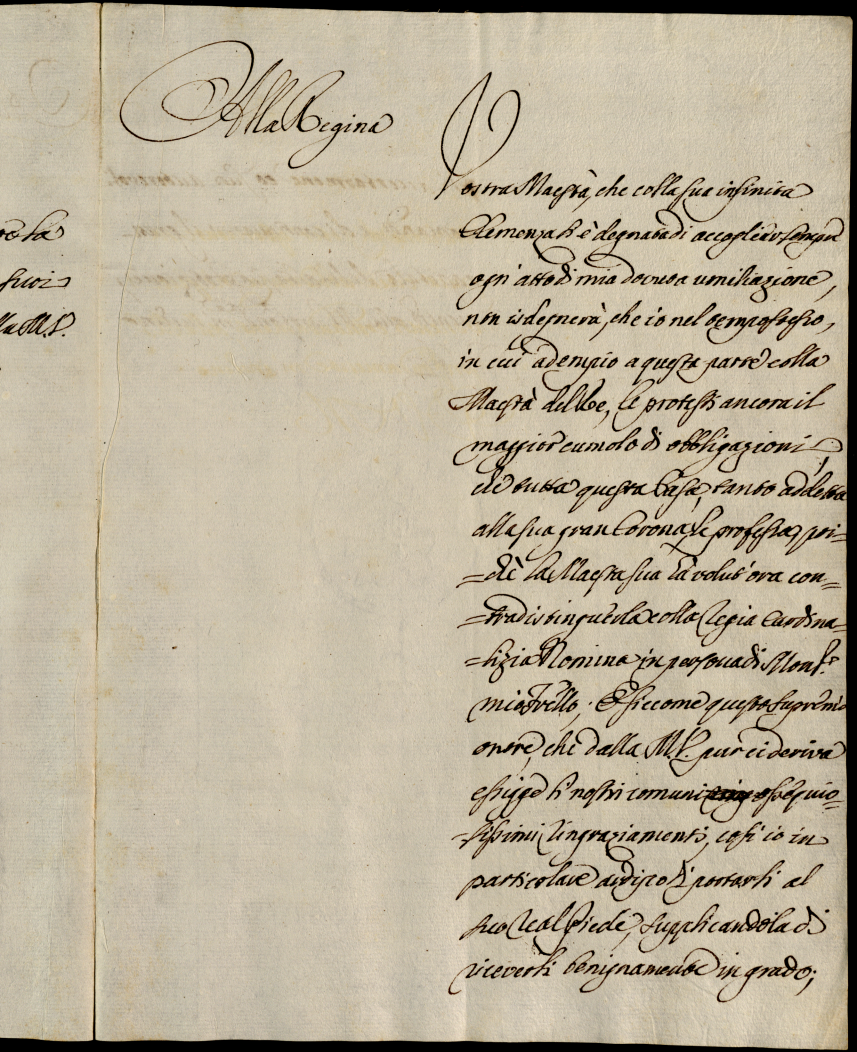 re la
suoi
lla M.V.
Alla Regina
Vostra Maestà, che colla sua infinita
Clemenza si è degnata di accogliere sempre
ogn'atto di mia dovuta umiliazione,
non isdegnerà, che io nel tempo stesso,
in cui adempio a questa parte colla
Maestà del Re, Le protesti ancora il
maggior cumolo di obbligazioni,
che tutta questa Casa, tanto addetta
alla sua gran Corona, Le professa, poi=
=chè la Maestà sua l'à volut'ora con=
=tradistinguerla colla Regia Cardina=
=lizia Nomina in persona di Monsr.
mio Frello; E siccome questo supremo
onore, che dalla M.V. pur ci deriva
essigge li nostri comuni ossequio=
=sissimi ringraziamenti, così io in
particolare ardisco di portarli al
suo Real Piede, supplicandola di
riceverli benignamente in grado;